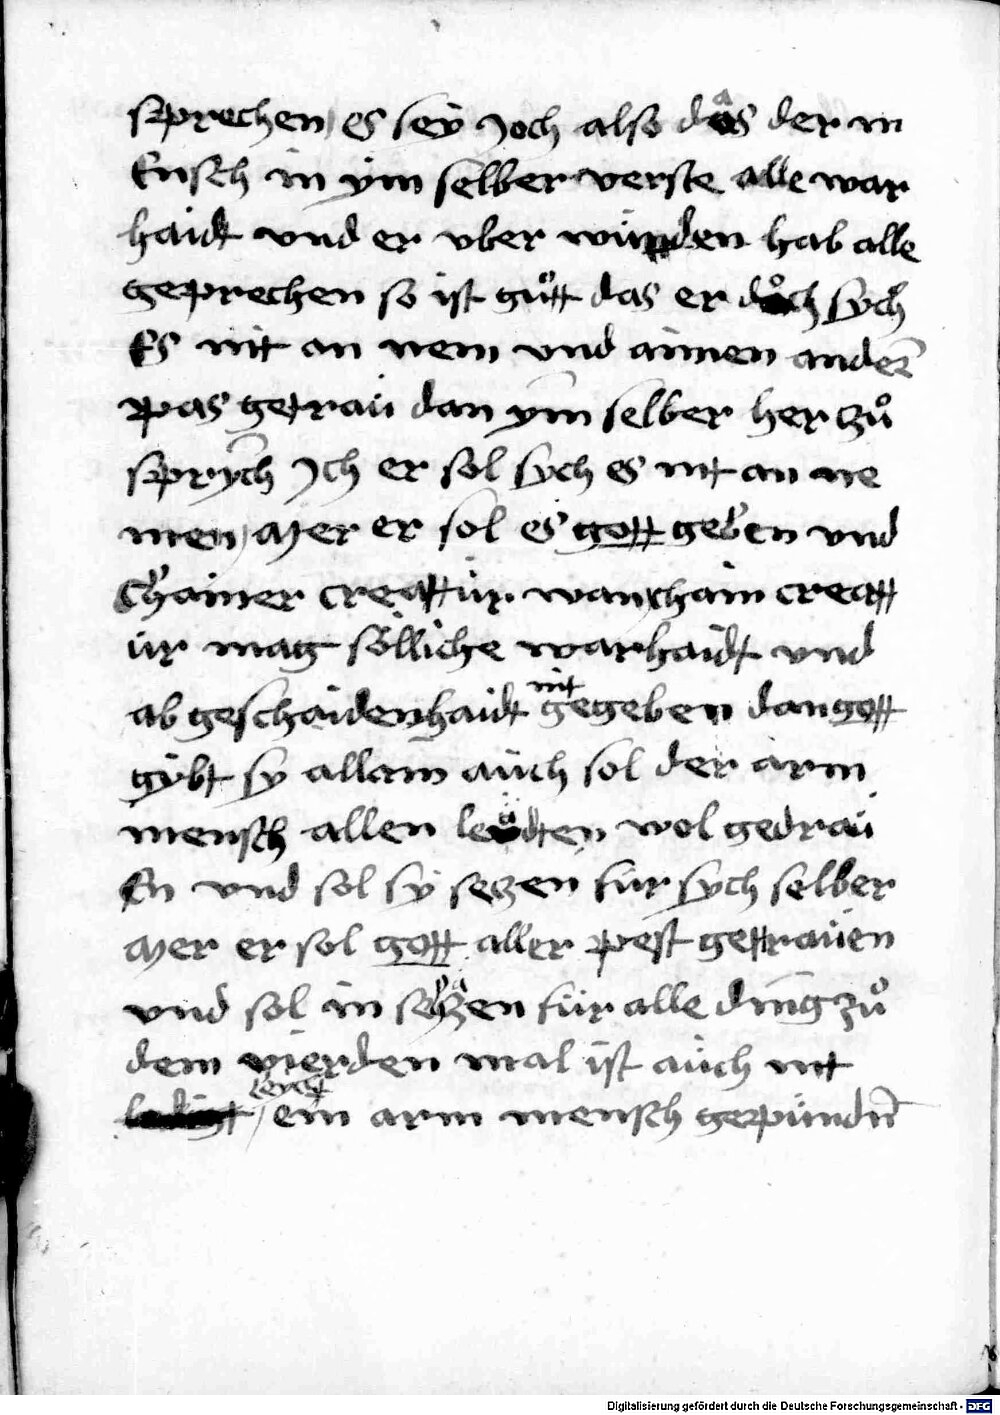 sprechen es sey Joch also das der m
Ensch in ym selber verste alle war
haidt vnd er vber wunden hab alle
geprechen so ist gůtt das er doch sych
Es nit an nem vnd ainen anderñ
pas getraü dan ym selber her zů
sprych Jch er sol sych es nit an ne
men Mer er sol es gott geben vnd
Chainer creattür wan chain creatt
ür mag sölliche warhaidt vnd
ab geschaidenhaidt nit gegeben dan gott
gybt sy allain aüch sol der arm
mensch allen leüdten wol gedraü
En vnd sol sy seczen für sych selber
Mer er sol gott aller pest gettraüen
vnd sol in seczen für alle ding zů
dem vierden mal ist aüch nit
ein arm mensch gepündñ
Digitalisierung gefördert durch die Deutsche Forschungsgemeinschaft - DFG